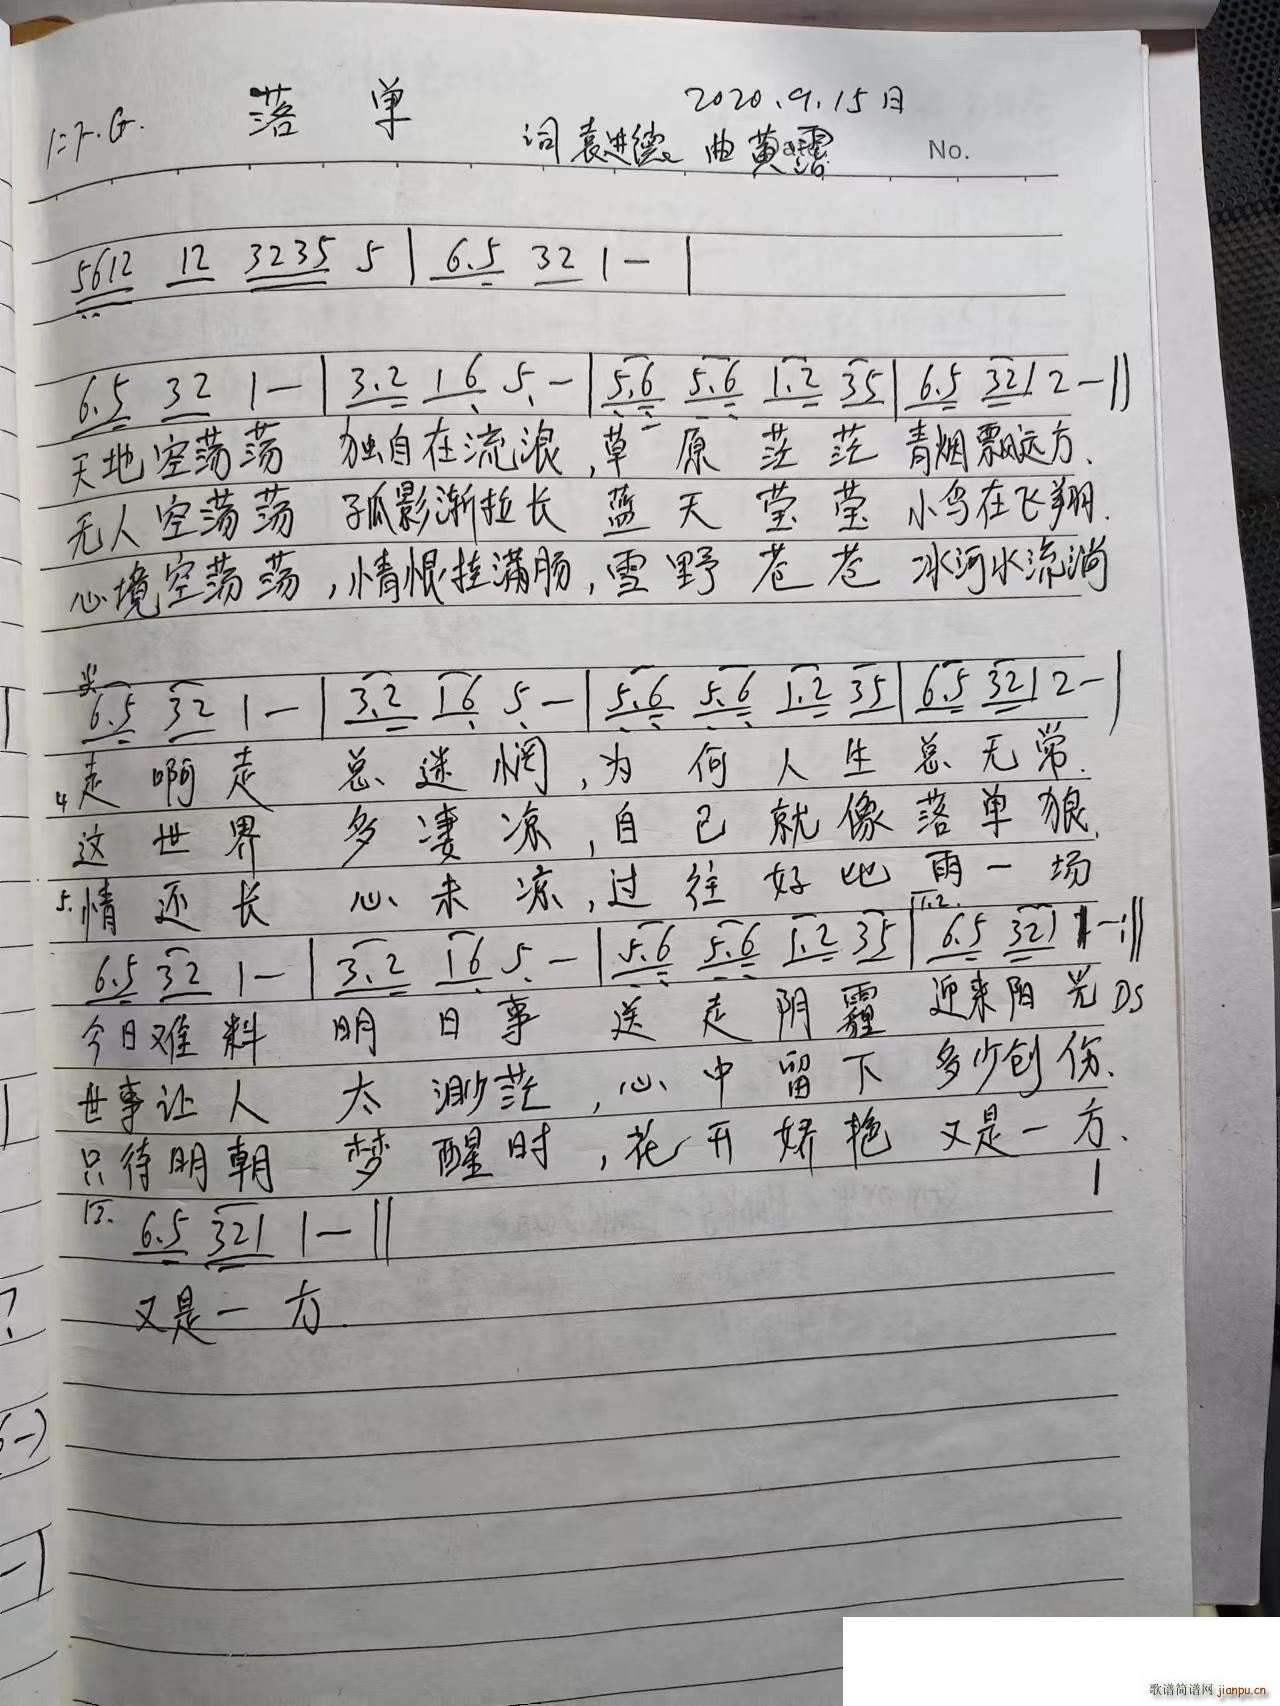 落单 2020.9.15日
1=F.G. 词袁进德 曲黄露 No.
5612 12 3235 5 | 6.5 32 1 - |
6.5 32 1 - | 3.2 16 5 - | 5.6 5.6 1.2 35 | 6.5 321 2 - ||
天地空荡荡 独自在流浪,草原茫茫 青烟飘远方.
无人空荡荡 孑孤影渐拉长 蓝天莹莹 小鸟在飞翔.
心境空荡荡,情恨挂满肠,雪野苍苍 冰河水流淌
6.5 32 1 - | 3.2 16 5 - | 5.6 5.6 1.2 35 | 6.5 321 2 - |
走啊走 总迷惘,为何人生总无常.
4 这世界 多凄凉,自己就像落单狼.
5. 情还长 心未凉,过往好比雨一场
1.2.
6.5 32 1 - | 3.2 16 5 - | 5.6 5.6 1.2 35 | 6.5 321 1 - :||
今日难料 明日事 送走阴霾 迎来阳光 DS
世事让人 太渺茫,心中留下 多少创伤.
只待明朝 梦醒时,花开娇艳 又是一方.
6.5 321 1 - ||
又是一方.
歌谱简谱网 jianpu.cn